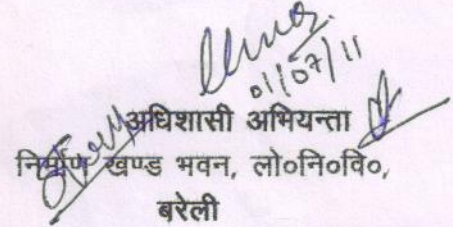 01/07/11
अधिशासी अभियन्ता
निर्माण खण्ड भवन, लो०नि०वि०,
बरेली